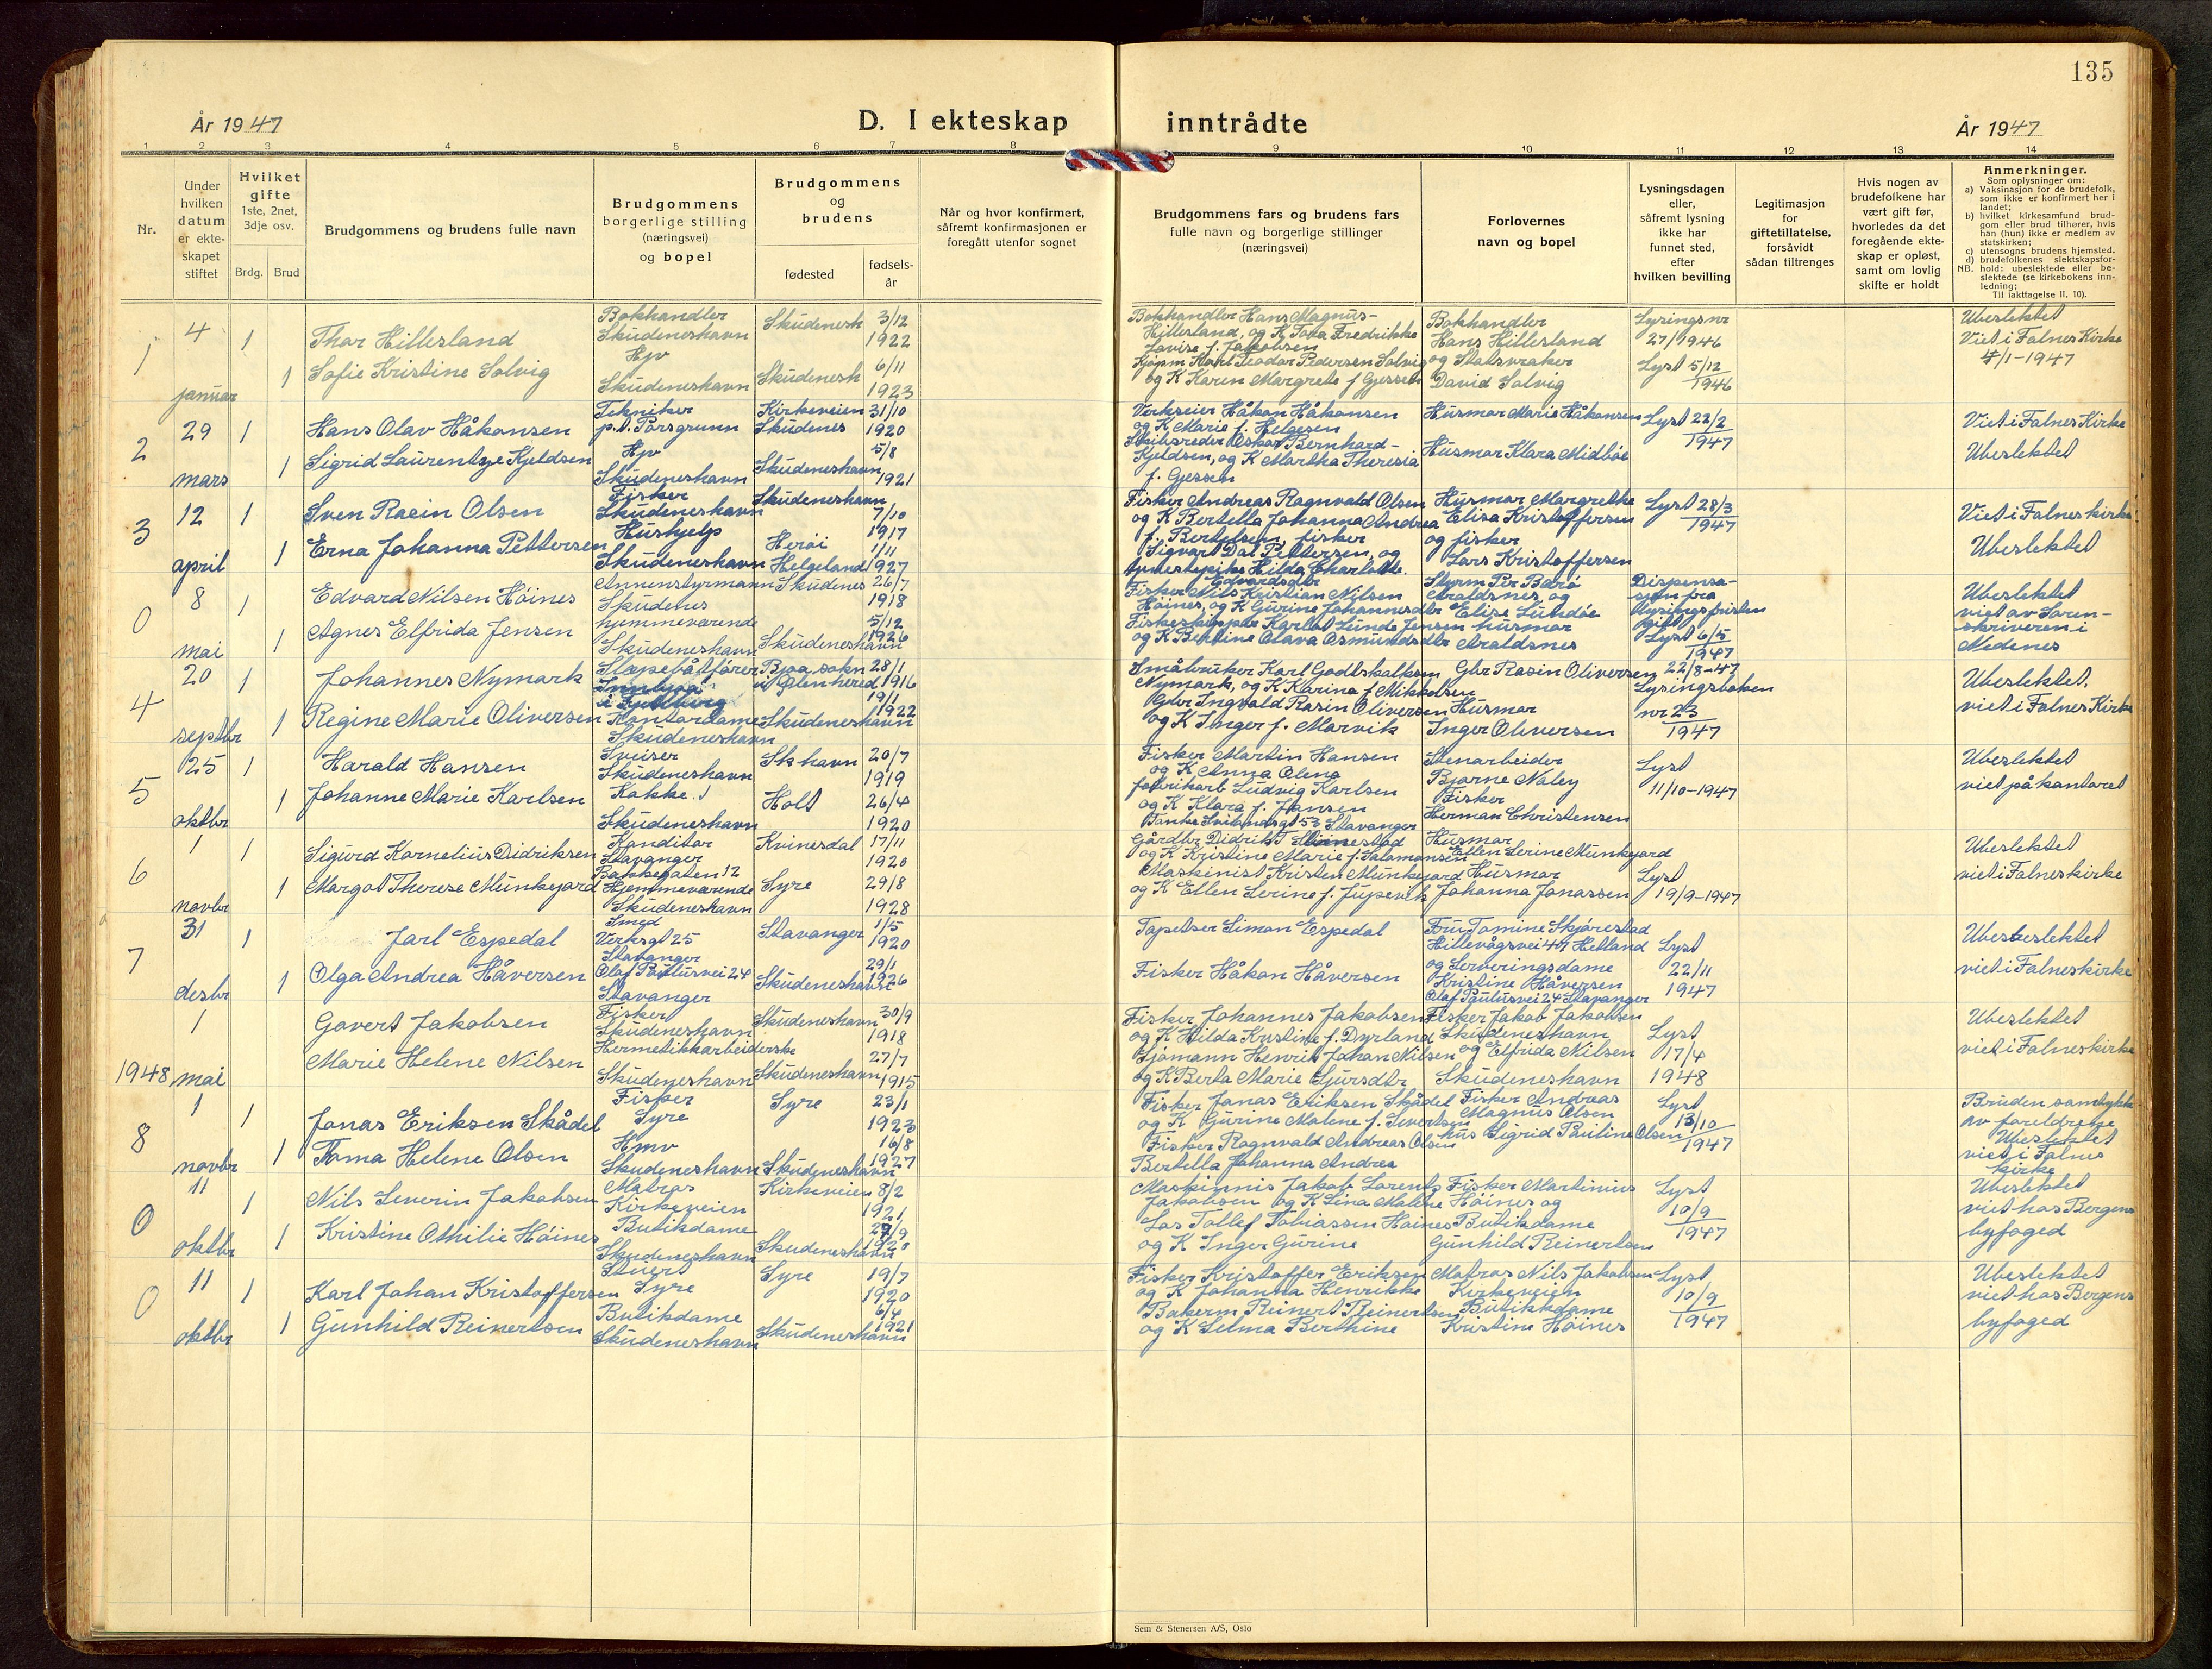 135
År 1947
D. I ekteskap inntrådte
År 1947
1 2 3 4 5 6 7 8 9 10 11 12 13 14
Nr.
Under
hvilken
datum
er ekte-
skapet
stiftet
Hvilket
gifte
1ste, 2net,
3dje osv.
Brdg. Brud
Brudgommens og brudens fulle navn
Brudgommens
borgerlige stilling
(næringsvei)
og bopel
Brudgommens
og
brudens
fødested
fødsels-
år
Når og hvor konfirmert,
såfremt konfirmasjonen er
foregått utenfor sognet
Brudgommens fars og brudens fars
fulle navn og borgerlige stillinger
(næringsvei)
Forlovernes
navn og bopel
Lysningsdagen
eller,
såfremt lysning
ikke har
funnet sted,
efter
hvilken bevilling
Legitimasjon
for
giftetillatelse,
forsåvidt
sådan tiltrenges
Hvis nogen av
brudefolkene har
vært gift før,
hvorledes da det
foregående ekte-
skap er opløst,
samt om lovlig
skifte er holdt
Anmerkninger.
Som oplysninger om:
a) Vaksinasjon for de brudefolk,
som ikke er konfirmert her i
landet;
b) hvilket kirkesamfund brud-
gom eller brud tilhører, hvis
han (hun) ikke er medlem av
statskirken;
c) utensogns brudens hjemsted.
d) brudefolkenes slektskapsfor-
NB. hold: ubeslektede eller be-
slektede (se kirkebokens inn-
ledning;
Til iakttagelse II. 10).
1
4
januar
1
1
Thor Hillesland
Sofie Kristine Solvig
Bokhandler
Skudeneshavn
Hjv
Skudeneshavn
Skudenesh
Skudenesh
3/12
1922
6/11
1923
Bokhandler Hans Magnus-
Hillesland, og K Tora Fredrikke
Lovise f. Jakobsen
Kjøpm Karl Teodor Pedersen Solvig
og K Karen Margrete f Gjessen
Bokhandler
Hans Hillesland
og Statsvraker
David Solvig
Lysingsnr
27/1946
Lyst 5/12
1946
Ubeslektet
Viet i Falnes Kirke
4/1-1947
2
29
mars
1
1
Hans Olav Håkonsen
Sigrid Laurentze Kjeldsen
Tekniker
p.t. Porsgrunn
Hjv
Skudeneshavn
Kirkeveien
Skudenes
Skudeneshavn
31/10
1920
5/8
1921
Verkseier Håkon Håkonsen
og K Marie f. Helgesen
Skibsreder Oskar Bernhard-
Kjeldsen, og K Martha Theresia
f. Gjessen
Husmor Marie Håkonsen
Husmor Klara Midbøe
Lyst 22/2
1947
Viet i Falnes Kirke
Ubeslektet
3
12
april
1
1
Sven Rasin Olsen
Erna Johanna Pettersen
Fisker
Skudeneshavn
Hushjelp
Skudeneshavn
Skudeneshavn
Herøi
Helgeland
7/10
1917
1/11
1927
Fisker Andreas Ragnvald Olsen
og K Bertella Johanna Andrea
f. Bertelsen, fisker
Sigvart Dal Pettersen, og
Hilda Charlotte
Edvardsdtr
Husmor Margrethe
Elisa Kristoffersen
og fisker
Lars Kristoffersen
Lyst 28/3
1947
Viet i Falnes kirke
Ubeslektet
0
8
mai
1
1
Edvard Nilsen Høines
Agnes Elfrida Jensen
Annenstyrmann
Skudenes
hjemmeværende
Skudeneshavn
Skudenes
Skudeneshavn
26/7
1918
5/12
1926
Fisker Nils Kristian Nilsen
Høines, og K Gurine Johannesdtr
Fiskeskipper Karlot Lunde Jensen
og K Bertine Olava Osmundsdtr
Styrm Per Barø
Araldsnes, og
Elise Lundøe
husmor
Araldsnes
Dispensa-
sjon fra
lysingsfristen
gitt
Lyst 6/5
1947
Ubeslektet
viet av Soren-
skriveren i
Nedenes
4
20
septbr
1
1
Johannes Nymark
Regine Marie Oliversen
Slepebåtfører
Kontordame
Skudeneshavn
Bjoa sokn
i Ølen hered
Skudeneshavn
28/1
1916
19/1
1922
Småbruker Karl Godtskalksen
Nymark, og K Karina f Mikkelsen
Gbr Ingvald Rasin Oliversen
og K Inger f. Marvik
Gbr Rasin Oliversen
Husmor
Inger Oliversen
22/8-47
Lysingsboken
nr 23
1947
Ubeslektet.
viet i Falnes Kirke
5
25
oktbr
1
1
Harald Hansen
Johanne Marie Karlsen
Sveiser
Skudeneshavn
Kokke
Skudeneshavn
Sk havn
Holt
20/7
1919
26/4
1920
Fisker Martin Hansen
og K Anna Olena
fabrikarb Ludvig Karlsen
og K Klara f. Jansen
Stenarbeider
Bjarne Naley
Fisker
Herman Christensen
Lyst
11/10-1947
Ubeslektet
viet på kontoret
6
1
novbr
1
1
Sigurd Kornelius Didriksen
Margot Therese Munkejord
Konditor
Stavanger
Bakkegaten 12
Hjemmeværende
Skudeneshavn
Kvinesdal
Syre
17/11
1920
29/8
1928
Gårdbr Didrik T
og K Kristine Marie f. Salomonsen
Maskinist Kristen Munkejord
og K Ellen Serine f. Jupevik
Husmor
Ellen Serine Munkejord
Husmor
Johanna Jonassen
Lyst
19/9-1947
Ubeslektet
viet i Falnes kirke
7
31
desbr
1
1
Jarl Espedal
Olga Andrea Håversen
Smed
Verksgt 25
Stavanger
Olaf Paulusvei 24
Stavanger
Stavanger
Skudeneshavn
1/5
1920
29/1
1926
Tapetser Simon Espedal
Fisker Håkon Håversen
Fru Tomine Skjørestad
Hillevågsvei 47 Hetland
og Serveringsdame
Kristine Håversen
Olaf Paulusvei 24 Stavanger
Lyst
22/11
1947
Ubesbeslektet
viet i Falnes kirke
1948
1
mai
Govert Jakobsen
Marie Helene Nilsen
Fisker
Skudeneshavn
Hermetikkarbeiderske
Skudeneshavn
Skudeneshavn
Skudeneshavn
30/9
1918
27/7
1915
Fisker Johannes Jakobsen
og K Hilda Kristine f. Dyrland
Sjømann Henrik Johan Nilsen
og K Berta Marie Sjursdtr
Fisker Jakob Jakobsen
Skudeneshavn
og Elfrida Nilsen
Skudeneshavn
Lyst
17/4
1948
Ubeslektet
viet i Falnes kirke
8
1
novbr
1
1
Jonas Eriksen Skådel
Toma Helene Olsen
Fisker
Syre
Hmv
Skudeneshavn
Syre
Skudeneshavn
23/1
1923
16/8
1927
Fisker Jonas Eriksen Skådel
og K Gurine Malene f. Sivertsen
Fisker Ragnvald Andreas Olsen
Bertella Johanna Andrea
Fisker Andreas
Magnus Olsen
hus Sigrid Pauline Olsen
Lyst
13/10
1947
Bruden samtykke
av foreldrene
Ubeslektet
viet i Falnes
kirke
0
11
oktbr
1
1
Nils Severin Jakobsen
Kristine Othilie Høines
Matros
Kirkeveien
Butikdame
Skudeneshavn
Kirkeveien
Skudeneshavn
8/2
1921
29/9
1920
Maskinnis Jakob Lorents
Jakobsen og K Lina Malene
Los Tollef Tobiassen Høines
og K Inger Gurine
Fisker Martinius
Høines og
Butikdame
Gunhild Reinertsen
Lyst
10/9
1947
Ubeslektet
viet hos Bergens
byfoged
0
11
oktbr
1
1
Karl Johan Kristoffersen
Gunhild Reinertsen
Stuert
Syre
Butikdame
Skudeneshavn
Syre
Skudeneshavn
19/7
1920
6/4
1921
Fisker Kristoffer Eriksen
og K Johanna Henrikke
Bakerm Reinert Reinertsen
og K Selma Berthine
Matros Nils Jakobsen
Kirkeveien
Butikkdame
Kristine Høines
Lyst
10/9
1947
Ubeslektet
viet hos Bergens
byfoged
Sem & Stenersen A/S, Oslo